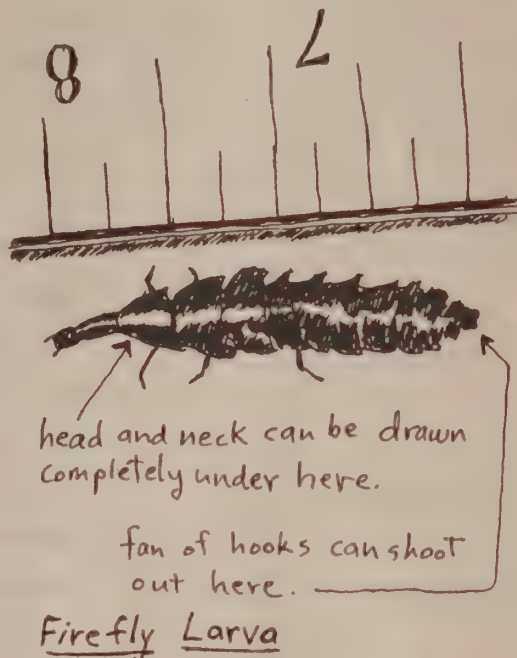 8 7
head and neck can be drawn
completely under here.
fan of hooks can shoot
out here.
Firefly Larva